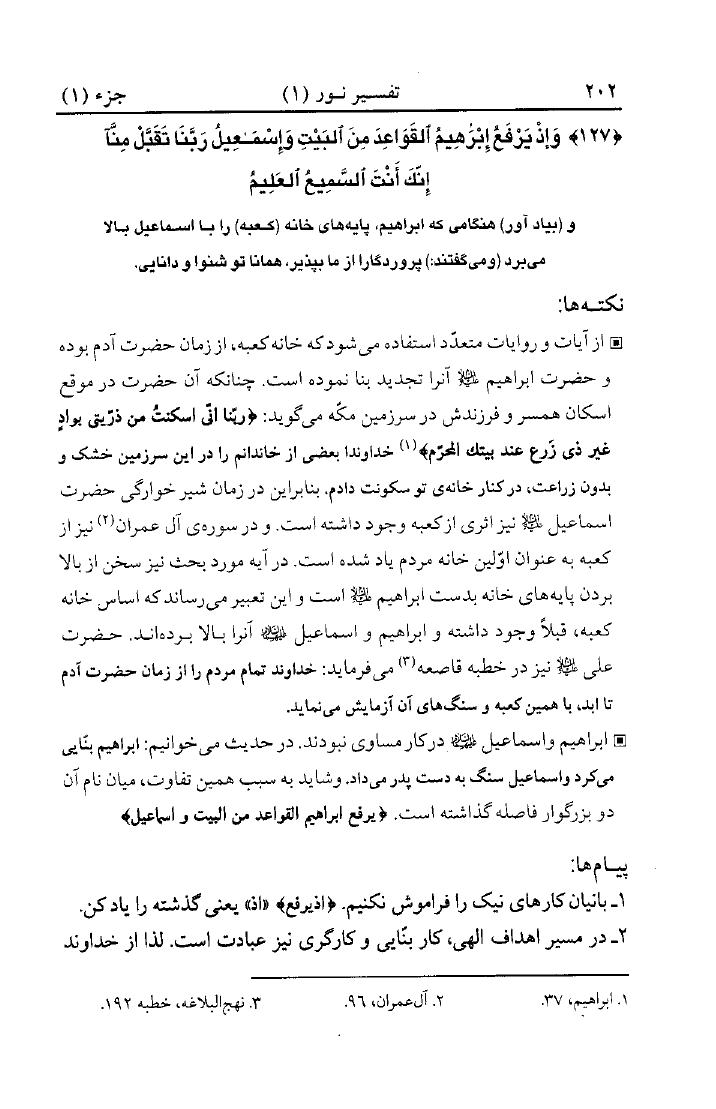 ۲۰۲ تفسیر نور (۱) جزء (۱)
﴿۱۲۷﴾ وَإِذْ يَرْفَعُ إِبْرَٰهِيمُ ٱلقَوَاعِدَ مِنَ ٱلبَيْتِ وَإِسْمَـٰعِيلُ رَبَّنَا تَقَبَّلْ مِنَّآ
إِنَّكَ أَنْتَ ٱلسَّمِيعُ ٱلعَلِيمُ
و (بیاد آور) هنگامی که ابراهیم، پایه‌های خانه (کعبه) را با اسماعیل بالا
می‌برد (و می‌گفتند:) پروردگارا از ما بپذیر، همانا تو شنوا و دانایی.
نکته‌ها:
▣ از آیات و روایات متعدّد استفاده می‌شود که خانه کعبه، از زمان حضرت آدم بوده
و حضرت ابراهیم علیه‌السلام آنرا تجدید بنا نموده است. چنانکه آن حضرت در موقع
اسکان همسر و فرزندش در سرزمین مکّه می‌گوید: ﴿ربّنا انّی اسکنتُ من ذرّیتی بوادٍ
غیر ذی زَرع عند بیتك المحرّم﴾(۱) خداوندا بعضی از خاندانم را در این سرزمین خشک و
بدون زراعت، در کنار خانه‌ی تو سکونت دادم. بنابراین در زمان شیر خوارگی حضرت
اسماعیل علیه‌السلام نیز اثری از کعبه وجود داشته است. و در سوره‌ی آل عمران(۲) نیز از
کعبه به عنوان اوّلین خانه مردم یاد شده است. در آیه مورد بحث نیز سخن از بالا
بردن پایه‌های خانه بدست ابراهیم علیه‌السلام است و این تعبیر می‌رساند که اساس خانه
کعبه، قبلاً وجود داشته و ابراهیم و اسماعیل علیهما‌السلام آنرا بالا برده‌اند. حضرت
علی علیه‌السلام نیز در خطبه قاصعه(۳) می‌فرماید: خداوند تمام مردم را از زمان حضرت آدم
تا ابد، با همین کعبه و سنگ‌های آن آزمایش می‌نماید.
▣ ابراهیم و اسماعیل علیهما‌السلام در کار مساوی نبودند. در حدیث می‌خوانیم: ابراهیم بنّایی
می‌کرد و اسماعیل سنگ به دست پدر می‌داد. و شاید به سبب همین تفاوت، میان نام آن
دو بزرگوار فاصله گذاشته است. ﴿یرفع ابراهیم القواعد من البیت و اسماعیل﴾
پیام‌ها:
۱ـ بانیان کارهای نیک را فراموش نکنیم. ﴿اذیرفع﴾ «اذ» یعنی گذشته را یاد کن.
۲ـ در مسیر اهداف الهی، کار بنّایی و کارگری نیز عبادت است. لذا از خداوند
۱. ابراهیم، ۳۷. ۲. آل‌عمران، ۹۶. ۳. نهج‌البلاغه، خطبه ۱۹۲.